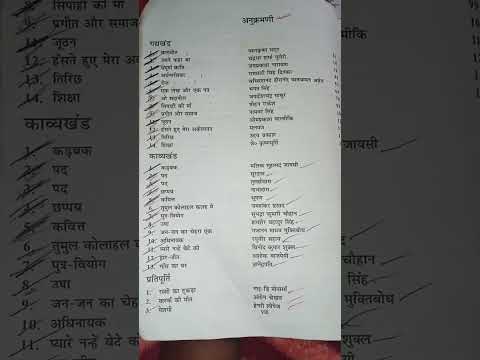 अनुक्रमणी
गद्यखंड
1. बातचीत
बालकृष्ण भट्ट
2. उसने कहा था
चंद्रधर शर्मा गुलेरी
3. संपूर्ण क्रांति
जयप्रकाश नारायण
4. अर्धनारीश्वर
रामधारी सिंह दिनकर
5. रोज
सच्चिदानंद हीरानंद वात्स्यायन अज्ञेय
6. एक लेख और एक पत्र
भगत सिंह
7. ओ सदानीरा
जगदीशचंद्र माथुर
8. सिपाही की माँ
मोहन राकेश
9. प्रगीत और समाज
नामवर सिंह
10. जूठन
ओमप्रकाश वाल्मीकि
11. हँसते हुए मेरा अकेलापन
मलयज
12. तिरिछ
उदय प्रकाश
13. शिक्षा
जे० कृष्णमूर्ति
काव्यखंड
1. कड़बक
मलिक मुहम्मद जायसी
2. पद
सूरदास
3. पद
तुलसीदास
4. छप्पय
नाभादास
5. कवित्त
भूषण
6. तुमुल कोलाहल कलह में
जयशंकर प्रसाद
7. पुत्र-वियोग
सुभद्रा कुमारी चौहान
8. उषा
शमशेर बहादुर सिंह
9. जन-जन का चेहरा एक
गजानन माधव मुक्तिबोध
10. अधिनायक
रघुवीर सहाय
11. प्यारे नन्हें बेटे को
विनोद कुमार शुक्ल
12. हार-जीत
अशोक वाजपेयी
13. गाँव का घर
ज्ञानेंद्रपति
प्रतिपूर्ति
1. रस्सी का टुकड़ा
गाइ-डि मोपासाँ
2. क्लर्क की मौत
अंतोन चेखव
3. पेशगी
हेनरी लोपेज
सिपाही की माँ
प्रगीत और समाज
जूठन
हँसते हुए मेरा अ
तिरिछ
शिक्षा
काव्यखंड
1. कड़बक
2. पद
3. पद
4. छप्पय
5. कवित्त
6. तुमुल कोलाहल
7. पुत्र-वियोग
8. उषा
9. जन-जन का चेहरा
10. अधिनायक
11. प्यारे नन्हें बेटे को
जायसी
चौहान
सिंह
मुक्तिबोध
शुक्ल